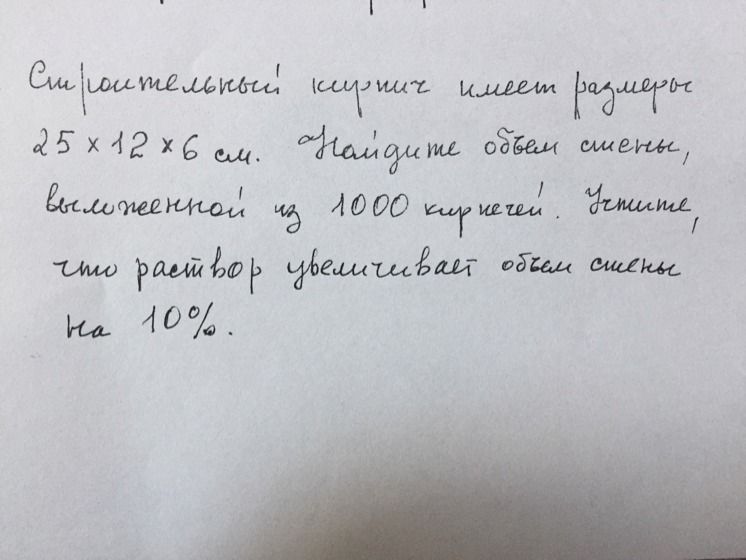 Строительный кирпич имеет размеры
25 × 12 × 6 см. Найдите объем стены,
выложенной из 1000 кирпичей. Учтите,
что раствор увеличивает объем стены
на 10%.